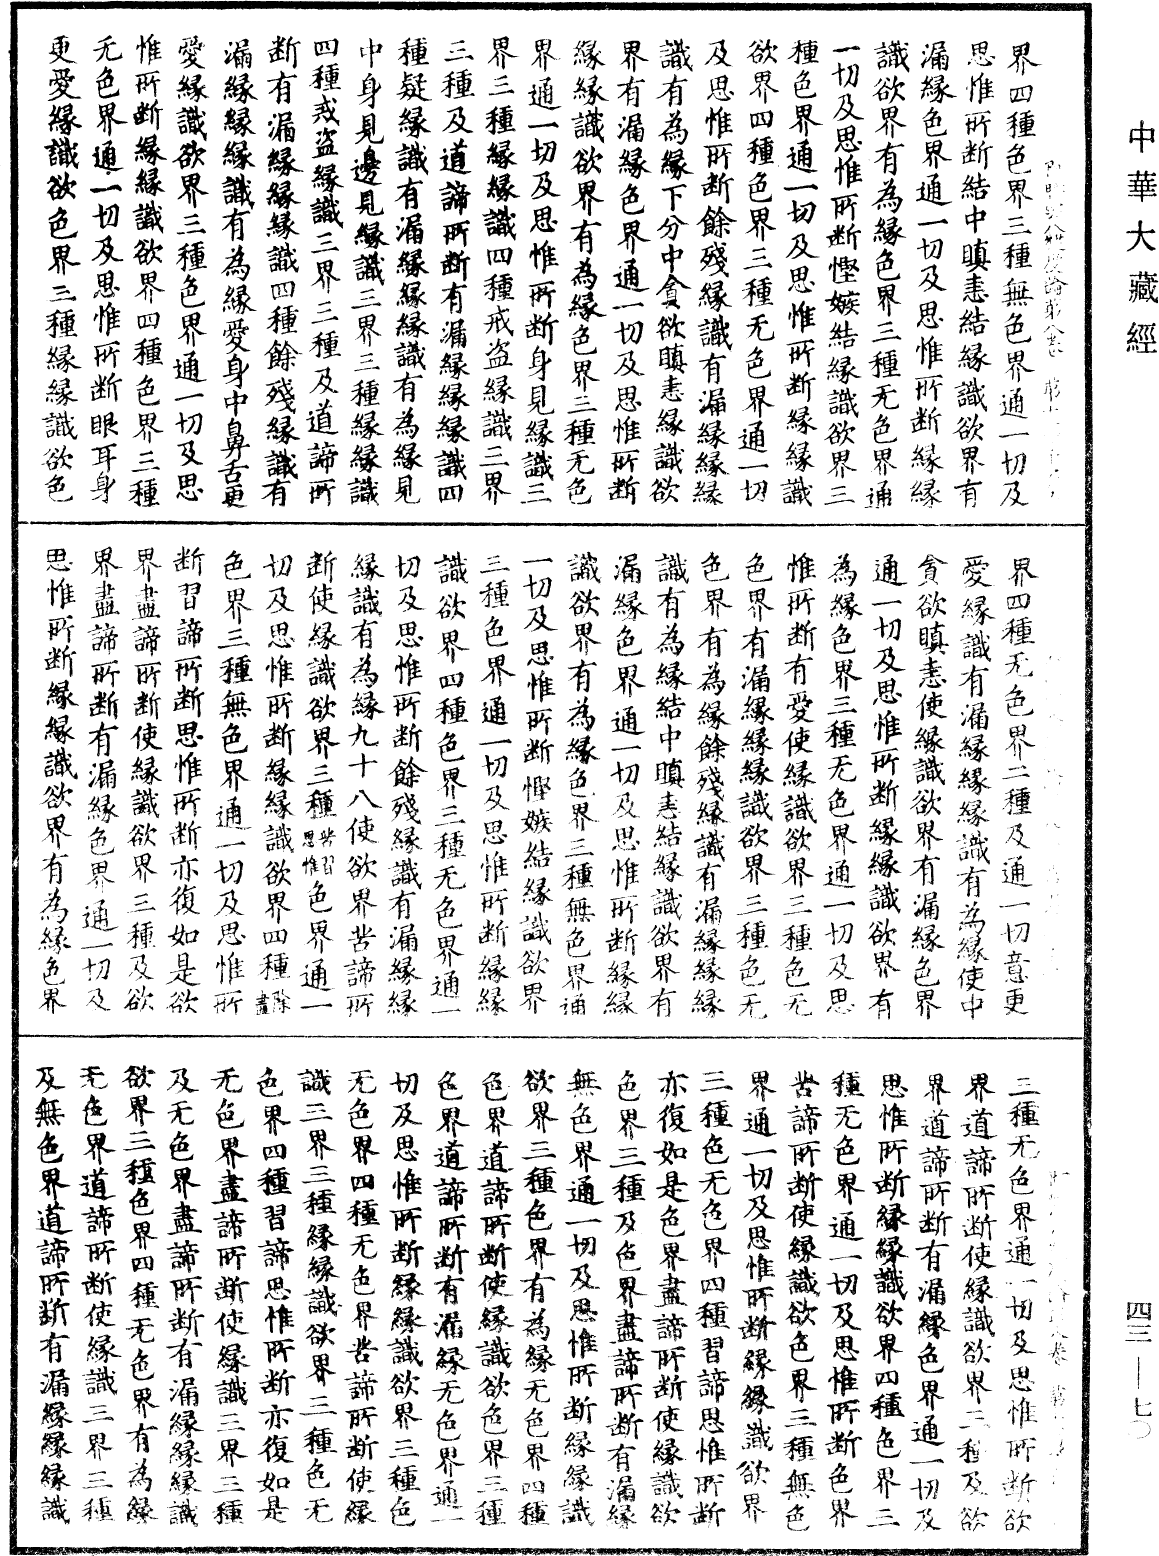 中華大藏經
界四種色界三種無色界通一切及
思惟所断結中瞋恚結縁識欲界有
漏縁色界通一切及思惟所断縁縁
識欲界有為縁色界三種无色界通
一切及思惟所断慳嫉結縁識欲界三
種色界通一切及思惟所断縁縁識
欲界四種色界三種无色界通一切
及思惟所断餘殘縁識有漏縁縁縁
識有為縁下分中貪欲瞋恚縁識欲
界有漏縁色界通一切及思惟所断
縁縁識欲界有為縁色界三種无色
界通一切及思惟所断身見縁識三
界三種縁縁識四種戒盜縁識三界
三種及道諦所断有漏縁縁縁識四
種疑縁識有漏縁縁縁識有為縁見
中身見邊見縁識三界三種縁縁識
四種戒盜縁識三界三種及道諦所
断有漏縁縁縁識四種餘殘縁識有
漏縁縁縁識有為縁愛身中鼻舌更
愛縁識欲界三種色界通一切及思
惟所断縁縁識欲界四種色界三種
无色界通一切及思惟所断眼耳身
更愛縁識欲色界三種縁縁識欲色
界四種无色界二種及通一切意更
愛縁識有漏縁縁縁識有為縁使中
貪欲瞋恚使縁識欲界有漏縁色界
通一切及思惟所断縁縁識欲界有
為縁色界三種无色界通一切及思
惟所断有愛使縁識欲界三種色无
色界有漏縁縁縁識欲界三種色无
色界有為縁餘殘縁識有漏縁縁縁
識有為縁結中瞋恚結縁識欲界有
漏縁色界通一切及思惟所断縁縁
識欲界有為縁色界三種無色界通
一切及思惟所断慳嫉結縁識欲界
三種色界通一切及思惟所断縁縁
識欲界四種色界三種无色界通一
切及思惟所断餘殘縁識有漏縁縁
縁識有為縁九十八使欲界苦諦所
断使縁識欲界三種苦習思惟色界通一
切及思惟所断縁縁識欲界四種除盡
色界三種無色界通一切及思惟所
断習諦所断思惟所断亦復如是欲
界盡諦所断使縁識欲界三種及欲
界盡諦所断有漏縁色界通一切及
思惟所断縁縁識欲界有為縁色界
三種无色界通一切及思惟所断欲
界道諦所断使縁識欲界三種及欲
界道諦所断有漏縁色界通一切及
思惟所断縁縁識欲界四種色界三
種无色界通一切及思惟所断色界
苦諦所断使縁識欲色界三種無色
界通一切及思惟所断縁縁識欲界
三種色无色界四種習諦思惟所断
亦復如是色界盡諦所断使縁識欲
色界三種及色界盡諦所断有漏縁
無色界通一切及思惟所断縁縁識
欲界三種色界有為縁无色界四種
色界道諦所断使縁識欲色界三種
色界道諦所断有漏縁无色界通一
切及思惟所断縁縁識欲界三種色
无色界四種无色界苦諦所断使縁
識三界三種縁縁識欲界三種色无
色界四種習諦思惟所断亦復如是
无色界盡諦所断使縁識三界三種
及无色界盡諦所断有漏縁縁縁識
欲界三種色界四種无色界有為縁
无色界道諦所断使縁識三界三種
及無色界道諦所断有漏縁縁縁識
四三—七〇